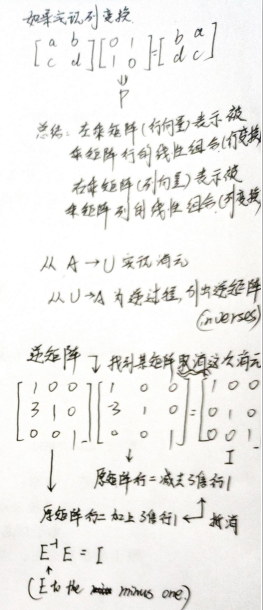 如果实现列变换
[a b
c d] [0 1
1 0] = [b a
d c]
⇓
P
总结：左乘矩阵(行向量)表示被
乘矩阵行的线性组合(行变换)
右乘矩阵(列向量)表示被
乘矩阵列的线性组合(列变换)
从 A → U 实现消元
从 U → A 为逆过程，引出逆矩阵
(inverses)
逆矩阵 找到某矩阵取消这次消元
[1 0 0
3 1 0
0 0 1] [1 0 0
-3 1 0
0 0 1] = [1 0 0
0 1 0
0 0 1]
I
原矩阵行二减去3倍行1
原矩阵行二加上3倍行1 抵消
E⁻¹E = I
(E to the minus one.)